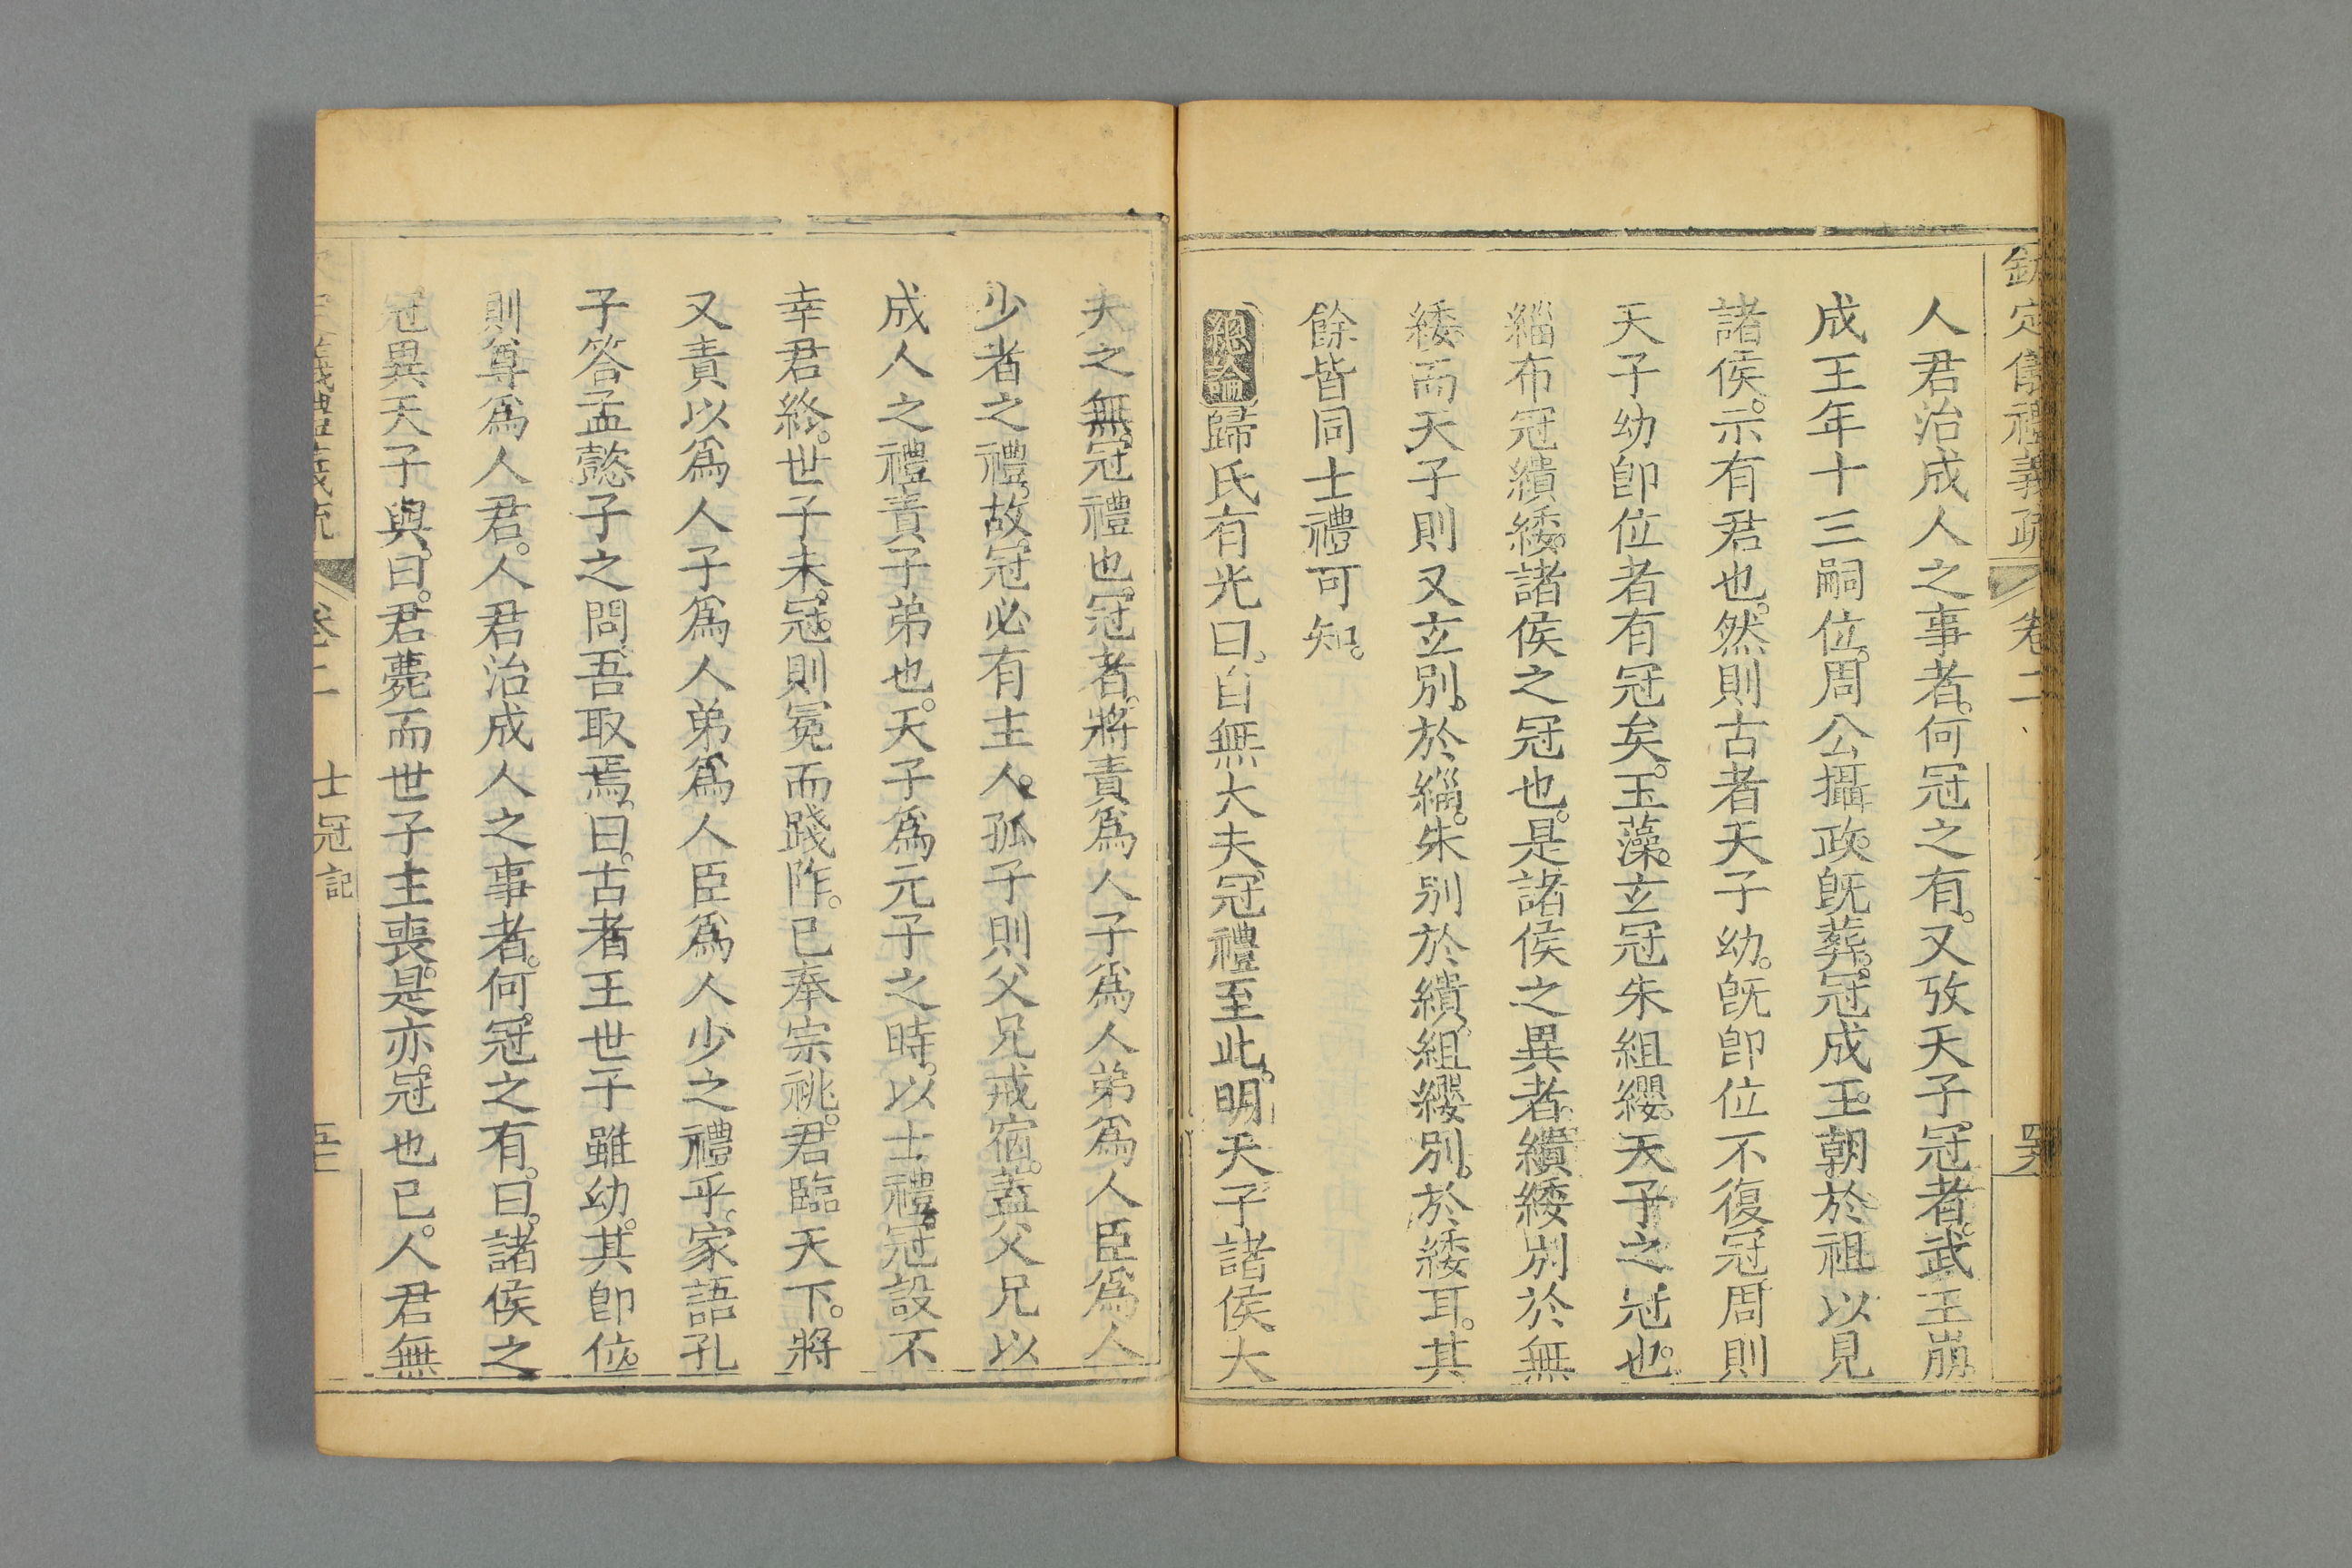 欽定儀禮義疏 卷二
人君治成人之事者。何冠之有。又攷天子冠者。武王崩。
成王年十三嗣位。周公攝政。旣葬。冠成王。朝於祖以見
諸侯。示有君也。然則古者天子幼。旣卽位不復冠周則
天子幼卽位者有冠矣。玉藻。玄冠朱組纓。天子之冠也。
緇布冠繢緌。諸侯之冠也。是諸侯之異者。繢緌別於無
緌。而天子則又玄別。於緇。朱別於繢。組纓別。於緌耳。其
餘皆同士禮可知。
總論 歸氏有光曰。自無大夫冠禮至此。明天子諸侯大
夫之無冠禮也。冠者。將責爲人子爲人弟爲人臣爲人
少者之禮。故冠必有主人。孤子則父兄戒宿。蓋父兄以
成人之禮責子弟也。天子爲元子之時。以士禮冠。設不
幸君終。世子未冠。則冕而踐阼。已奉宗祧。君臨天下。將
又責以爲人子爲人弟爲人臣爲人少之禮乎。家語孔
子答孟懿子之問。吾取焉。曰。古者王世子雖幼。其卽位。
則尊爲人君。人君治成人之事者。何冠之有。曰。諸侯之
冠異天子與。曰。君薨而世子主喪。是亦冠也已。人君無
卷二 士冠記